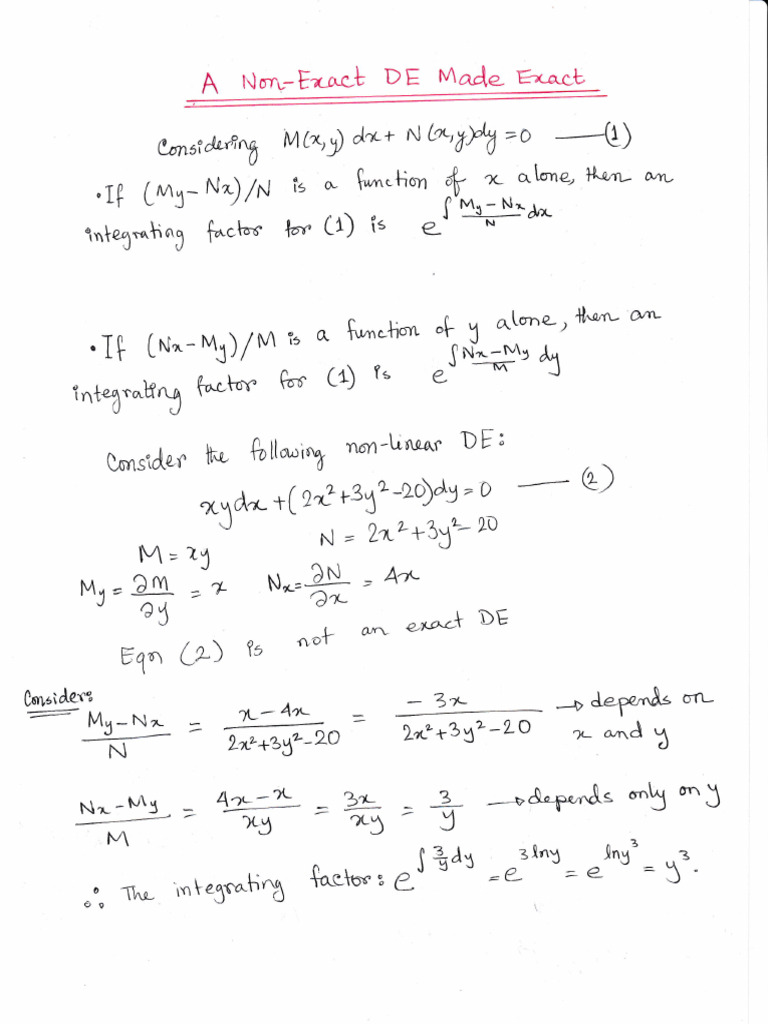 A Non-Exact DE Made Exact
Considering M(x,y) dx + N(x,y)dy = 0 —— (1)
• If (My - Nx)/N is a function of x alone, then an
integrating factor for (1) is e^∫ (My - Nx)/N dx
• If (Nx - My)/M is a function of y alone, then an
integrating factor for (1) is e^∫ (Nx - My)/M dy
Consider the following non-linear DE:
xydx + (2x² + 3y² - 20)dy = 0 —— (2)
M = xy N = 2x² + 3y² - 20
My = ∂M/∂y = x Nx = ∂N/∂x = 4x
Eqn (2) is not an exact DE
Consider:
(My - Nx)/N = (x - 4x)/(2x² + 3y² - 20) = (-3x)/(2x² + 3y² - 20) → depends on
x and y
(Nx - My)/M = (4x - x)/(xy) = 3x/(xy) = 3/y → depends only on y
∴ The integrating factor: e^∫ 3/y dy = e^3 ln y = e^ln y³ = y³.